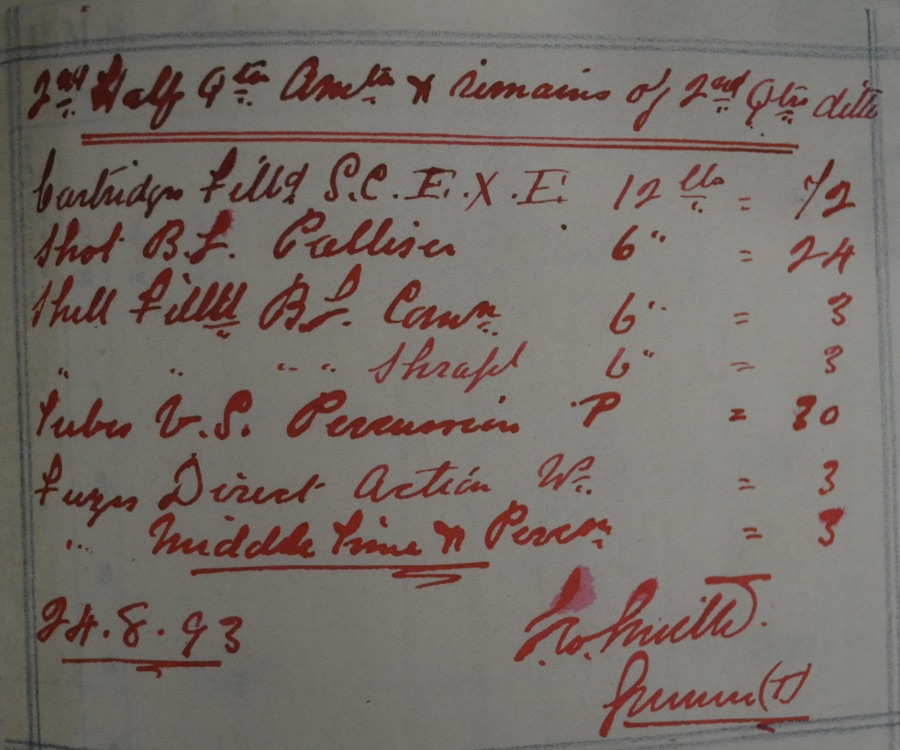 2nd Half Qtrs Amtn & remains of 2nd Qtrs ditto
Cartridges Filld S.C. E.X.E. 12 lbs = 72
Shot B.L. Palliser 6" = 24
Shell Filled B.L. Comn 6" = 3
" " " " Shrapl 6" = 3
Tubes V.S. Percussion P = 30
Fuzes Direct Action W. = 3
" Middle Time & Percn = 3
24.8.93
Smith
Gunner (T)